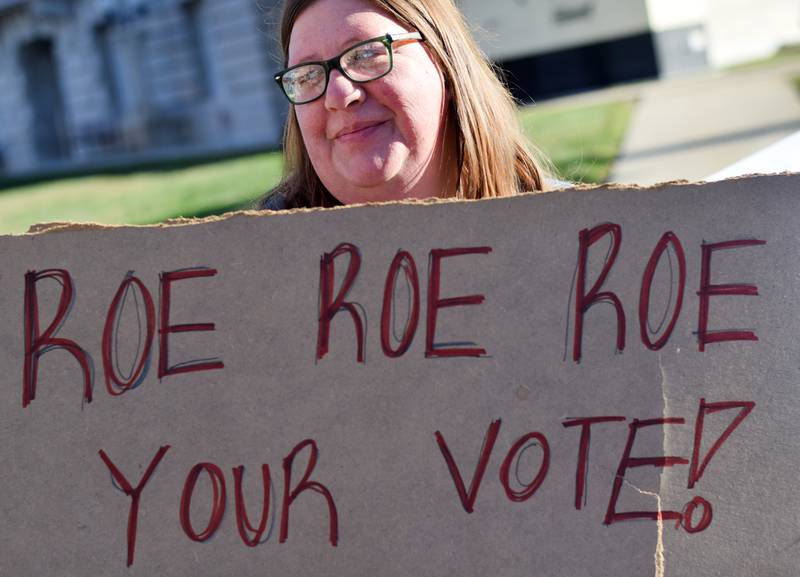 ROE ROE ROE
YOUR VOTE!